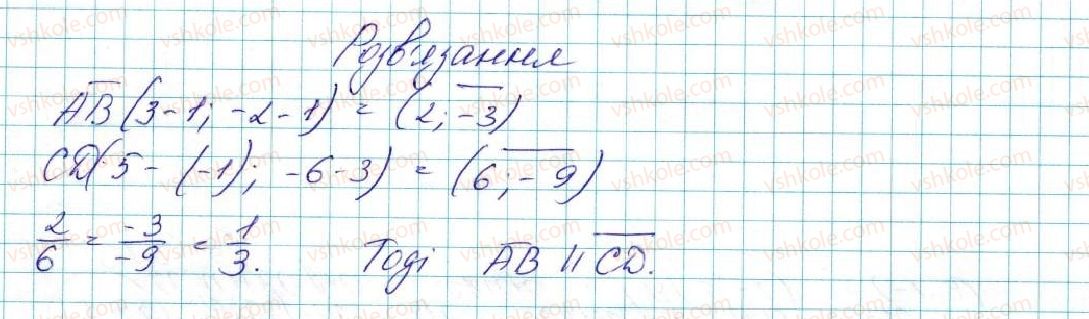 Розв'язання
AB̅ (3-1; -2-1) = (2; -3)
CD (5-(-1); -6-3) = (6; -9)
2/6 = -3/-9 = 1/3. Тоді AB̅ || C̅D̅.